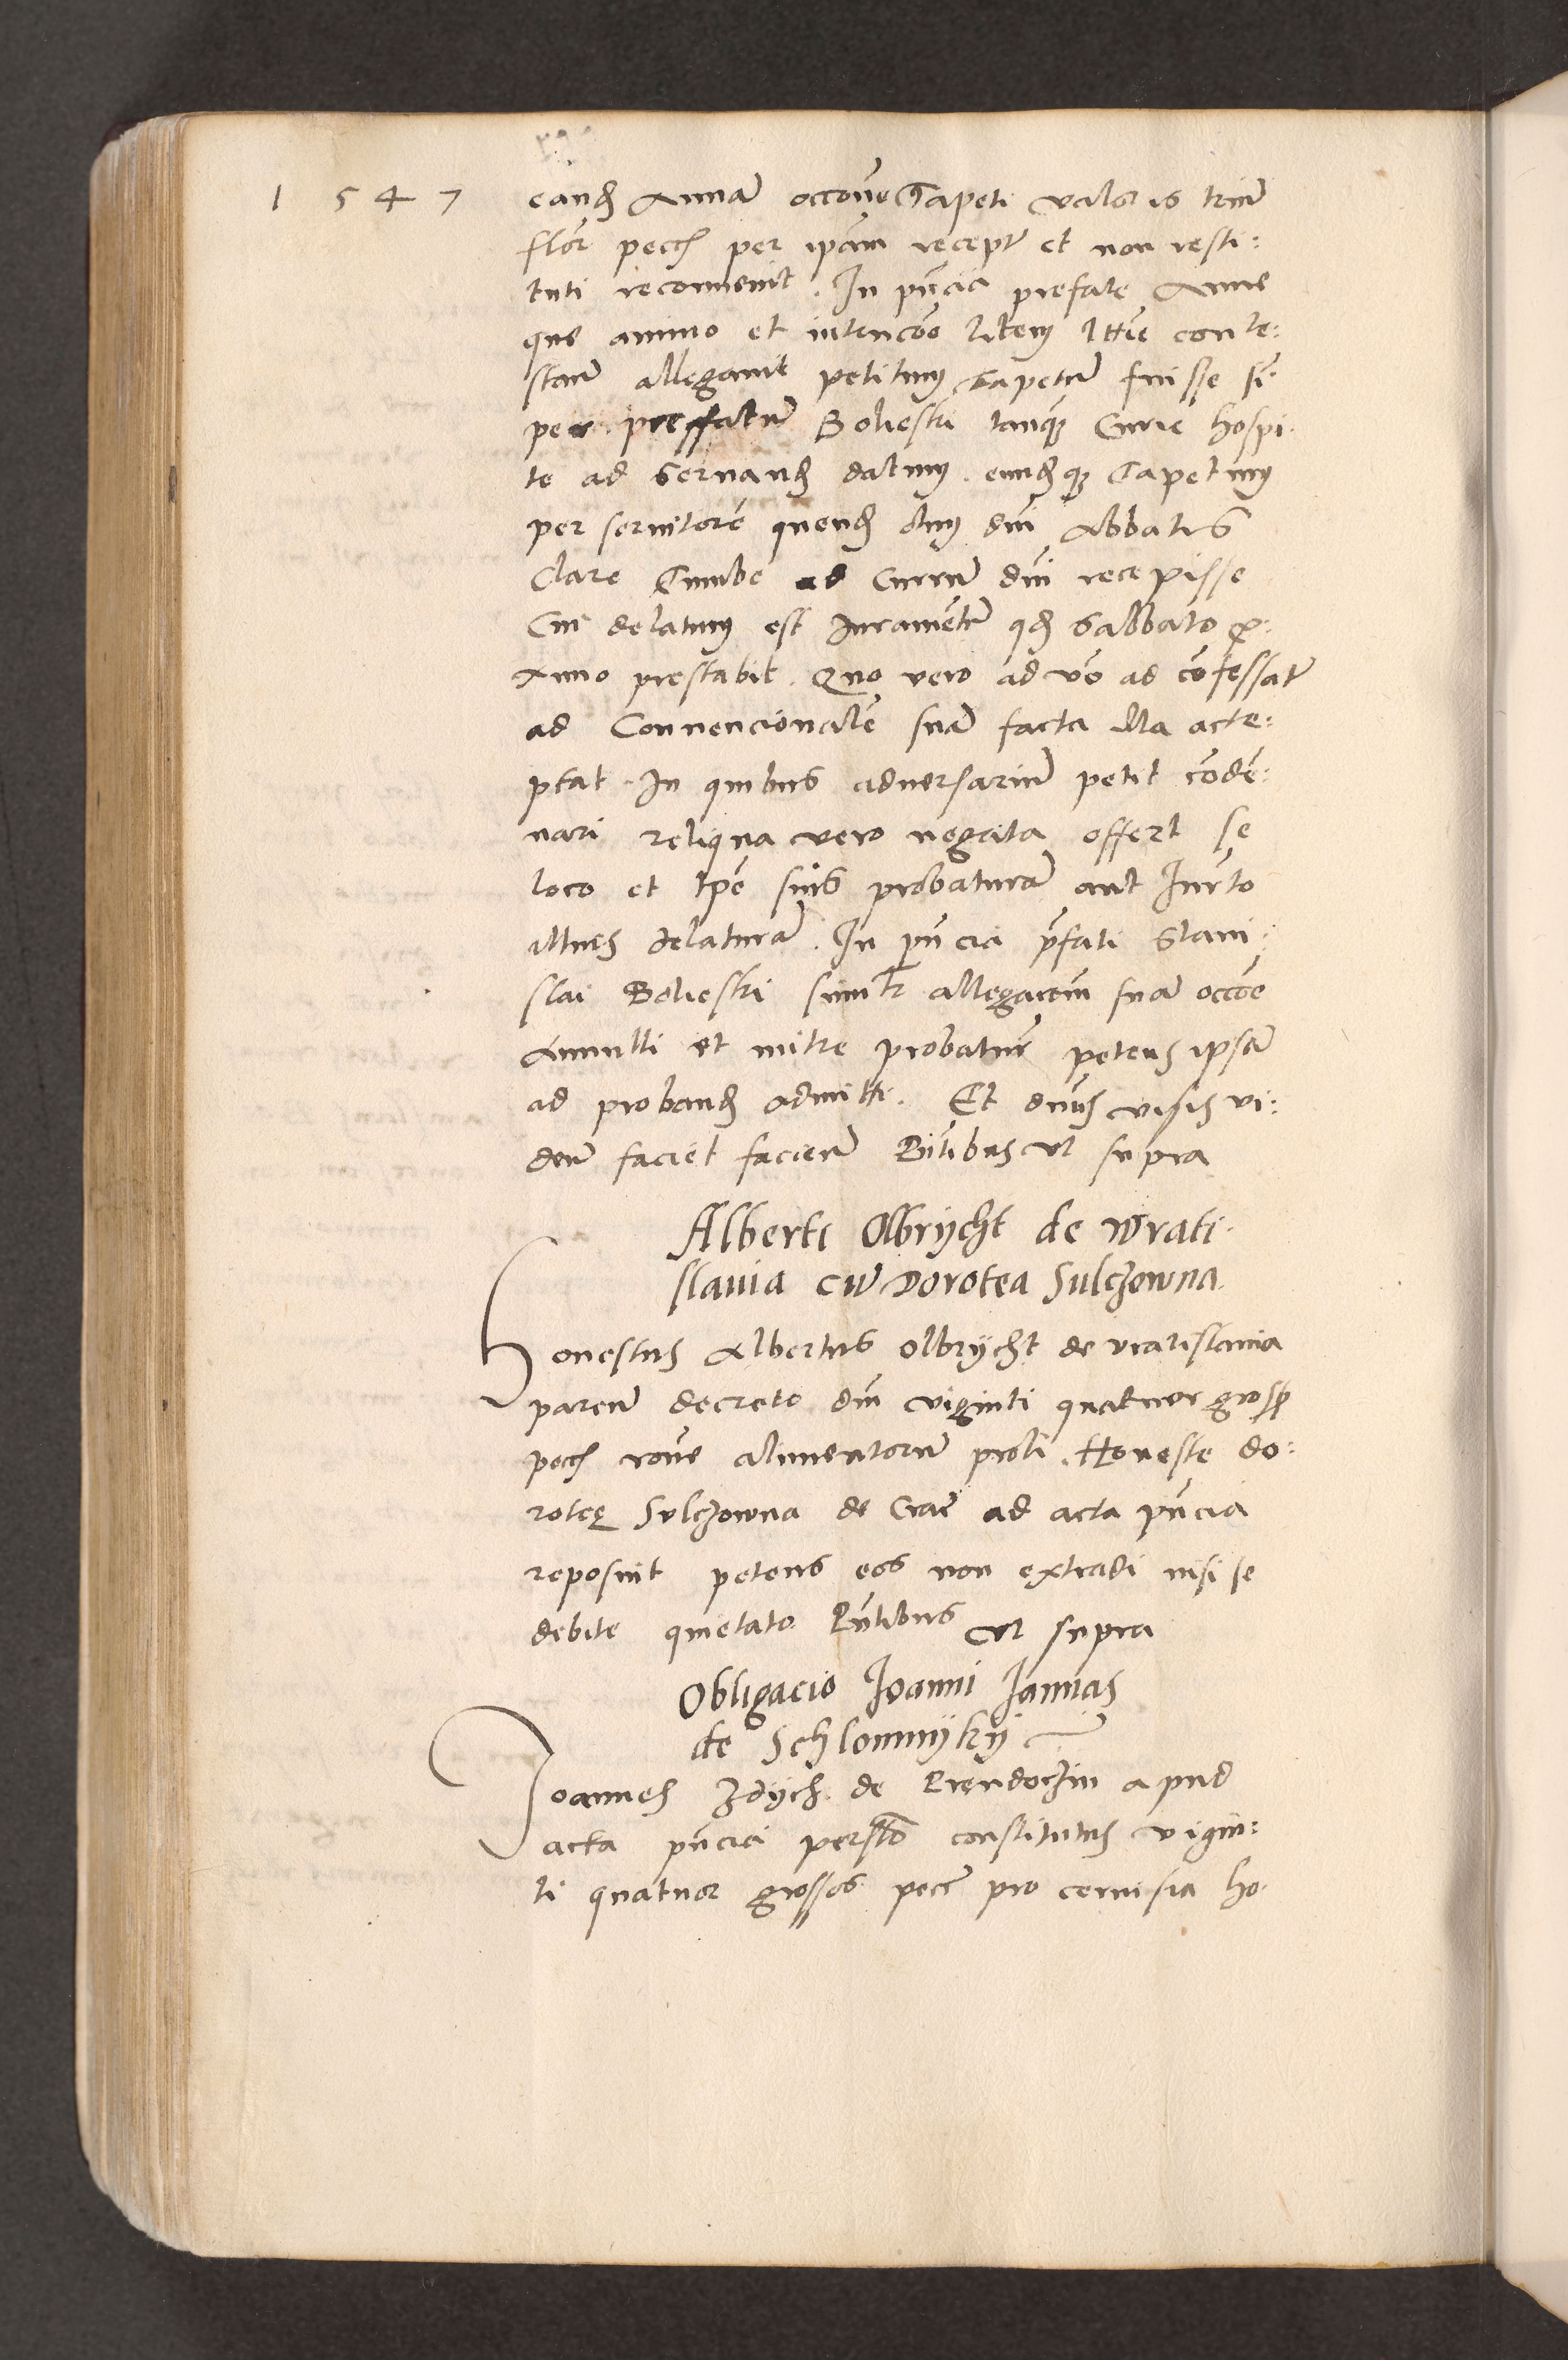 1547
eand Annam occōne Tapeti valoris trium
flor pecc per ipam recepti et non resti:
tuti reconuenit. In pn̄cia prefate Anne
que animo et intencōe litem lttie conte:
stan allegauit petitum Tapetum fuisse si
per preffatum Bolieski tanq̄ Curie hospi
te ad seruand datum. eundq Tapetum
per seruitorē quend olim dni Abbatis
Clare Tumbe ad Currum dni recepisse
Cui delatum est Iuramentum qd Sabbato pro:
ximo prestabit. Quo vero ad vero ad cōfessat
ad Conuencionalē suam facta illa acce:
ptat. In quibus aduersarium petit condē:
nari reliqua vero negata offert se
loco et tpe suis probaturam aut Iurto
illius delaturam. In pn̄cia prfati Stani
slai Bolieski simitr allegacōm suam occōe
Annulli et mitre probatur petens ipsam
ad proband admitti. Et dnus visis vi:
den faciet facien Pntibus vt supra
Alberti Olbrycht de Wrati
slauia cum Dorotea Sulczowna
Honestus Albertus Olbrycht de vratislauia
paren decreto dni viginti quatuor gross
pecc rōne alimentorum proli Honeste do:
roteę Sulczowna de Crac ad acta pn̄cia
reposuit petens eos non extradi nisi se
debite quietato Pntibus vt supra
Obligacio Ioanni Iannas
de Schlomnyky
Ioannes Zdych de Prendoczin apud
acta pn̄cia persto constitutus vigin:
ti quatuor grossos pecc pro ceruisia ho